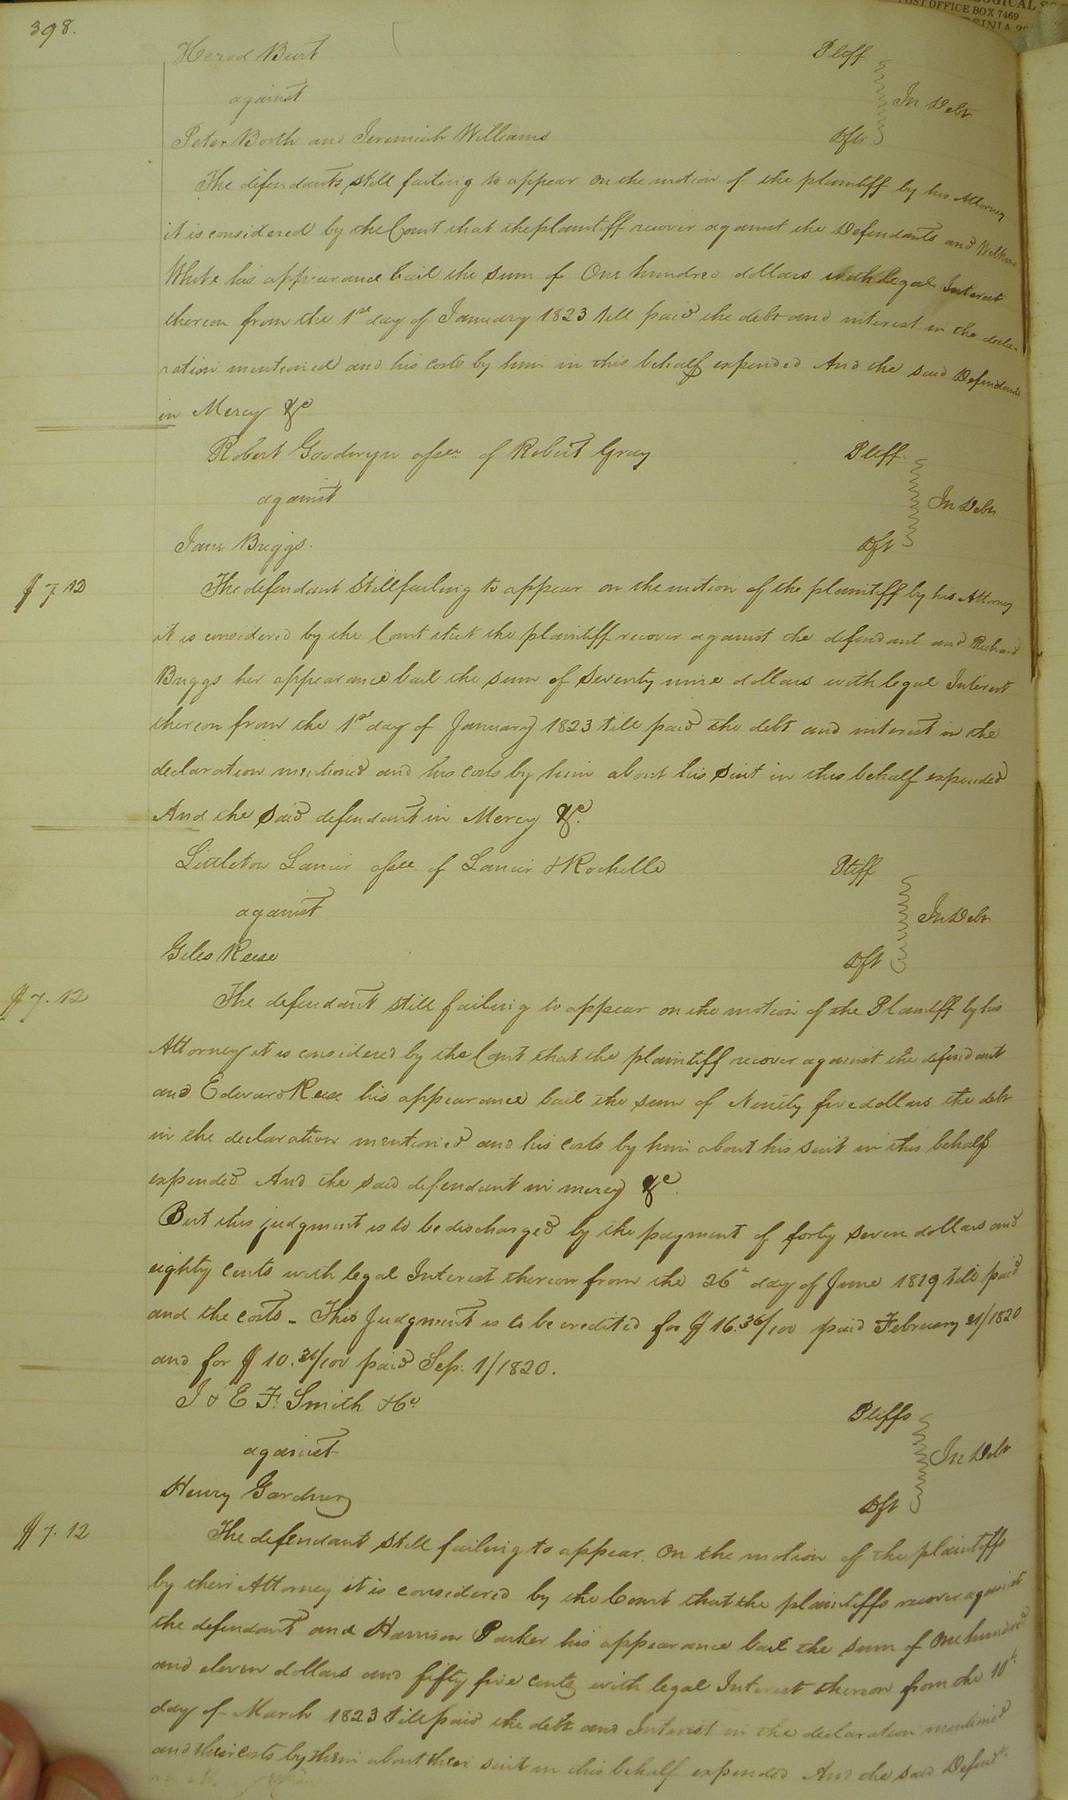 398.
POST OFFICE BOX 7469
Herod Burt Pleff
against In Debt
Peter Booth and Jeremiah Williams Dfts
The defendants still failing to appear on the motion of the plaintiff by his Attorney
it is considered by the Court that the plaintiff recover against the Defendants and William
White his appearance bail the sum of One hundred dollars with legal Interest
thereon from the 1st day of January 1823 till paid the debt and interest in the decla-
ration mentioned and his costs by him in this behalf expended And the said Defendants
in Mercy &c
Robert Goodwyn assee of Robert Gray Pleff
against In Debt
Jane Briggs. Dft
$7.12 The defendant still failing to appear on the motion of the plaintiff by his Attorney
it is considered by the Court that the plaintiff recover against the defendant and Richard
Briggs her appearance bail the sum of Seventy nine dollars with legal Interest
thereon from the 1st day of January 1823 till paid the debt and interest in the
declaration mentioned and his costs by him about his suit in this behalf expended
And the said defendant in Mercy &c.
Littleton Lanier assee of Lanier & Rochelle Pleff
against In Debt
Giles Reese Dft
$7.12 The defendant still failing to appear on the motion of the Plaintiff by his
Attorney it is considered by the Court that the plaintiff recover against the defendant
and Edward Reese his appearance bail the sum of Ninety five dollars the debt
in the declaration mentioned and his costs by him about his suit in this behalf
expended And the said defendant in mercy &c.
But this judgment is to be discharged by the payment of forty seven dollars and
eighty cents with legal Interest thereon from the 26th day of June 1819 till paid
and the costs - This Judgment is to be credited for $16.36/100 paid February 21/1820
and for $10.26/100 paid Sep. 1/1820.
J & E F. Smith & Co. Pleffs
against In Debt
Henry Gardner Dft
$7.12 The defendant still failing to appear. On the motion of the plaintiffs
by their Attorney it is considered by the Court that the plaintiffs recover against
the defendant and Harrison Parker his appearance bail the sum of One hundred
and eleven dollars and fifty five cents with legal Interest thereon from the 10th
day of March 1823 till paid the debt and Interest in the declaration mentioned
and their costs by them about their suit in this behalf expended And the said Defendt.